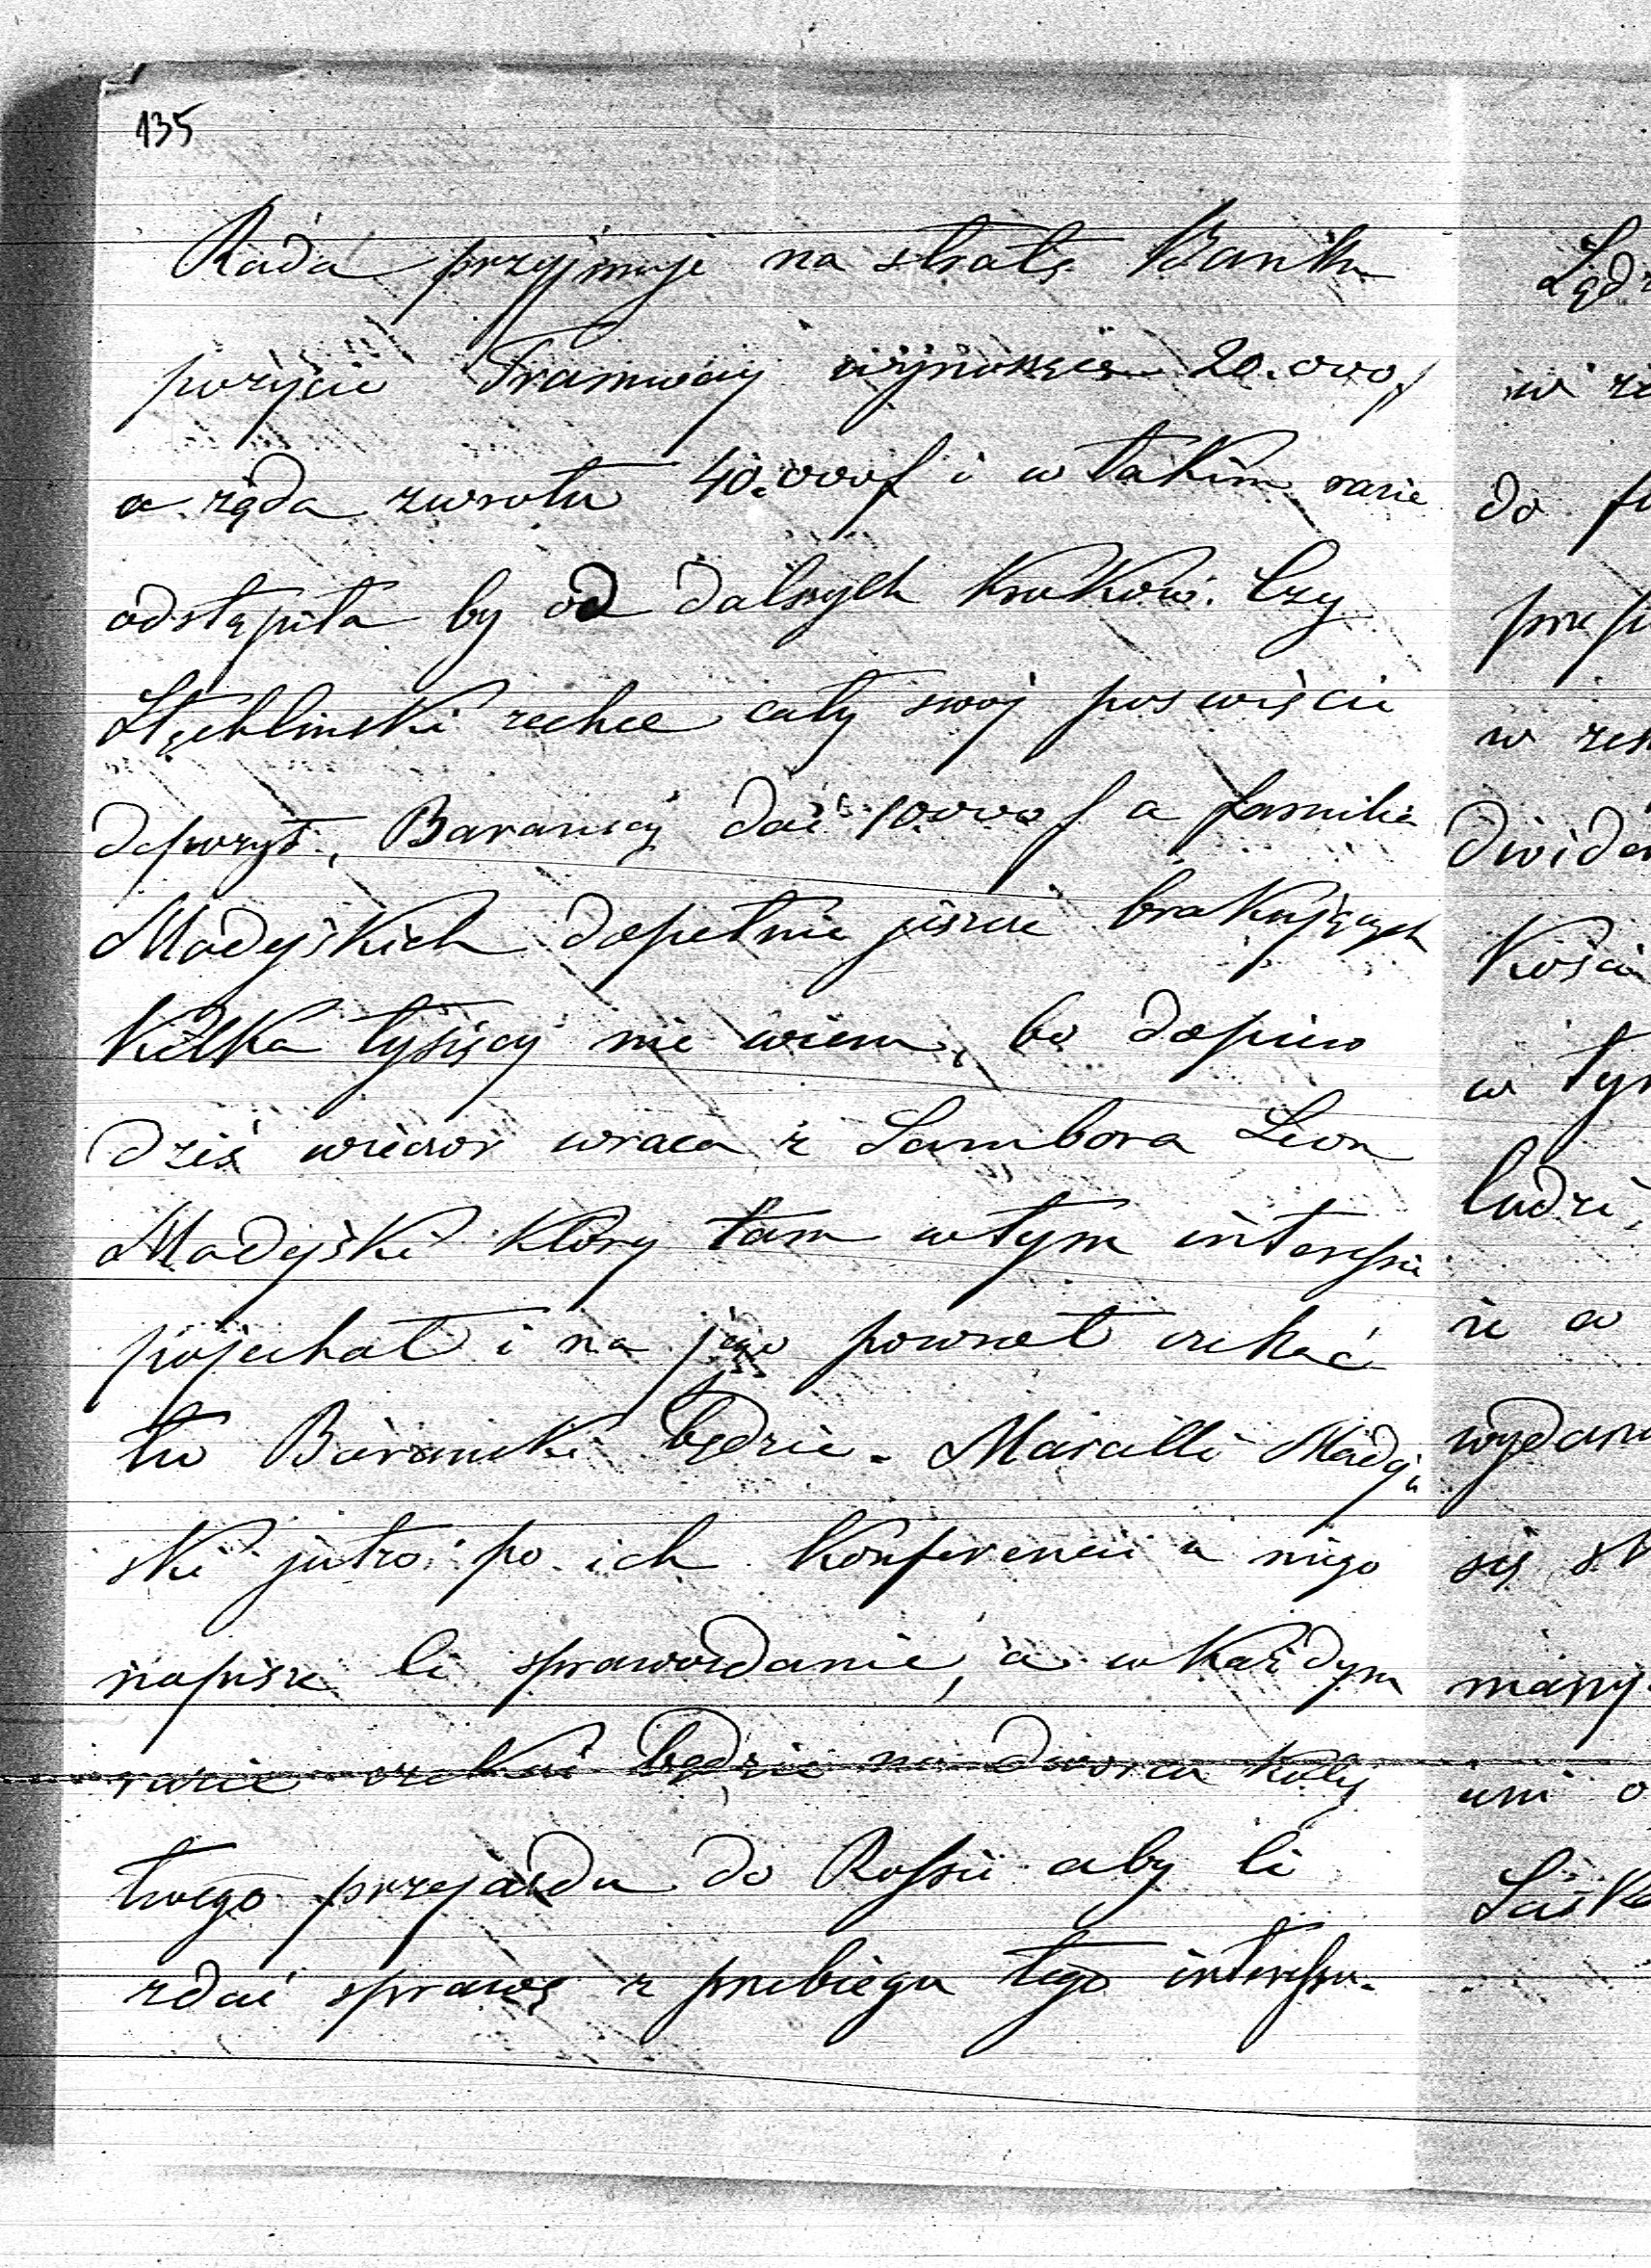 135
Rada przyjmuje na stratę Banku
pożycie Tramway wynoszące 20.000 f
a żąda zwrotu 40.000 f i w takim razie
odstąpiła by od dalszych kroków. Czy
zechce cały swój poświęcić
depozyt, Barańscy dać 10.000 f a familia
Madejskich dopełnić jeszcze brakujących
kilka tysięcy nie wiem, bo dopiero
dziś wieczór wraca z Sambora Leon
Madejski który tam w tym interessie
pojechał i na jego powrót czekać
tu Barański będzie. Marcelli Madej
ski jutro po ich konferencii u niego
napisze Ci sprawozdanie, a w każdym
razie czekać będzie na dworcu kolej
twego przejazdu do Rossii aby Ci
zdać sprawę z przebiegu tego interessu.